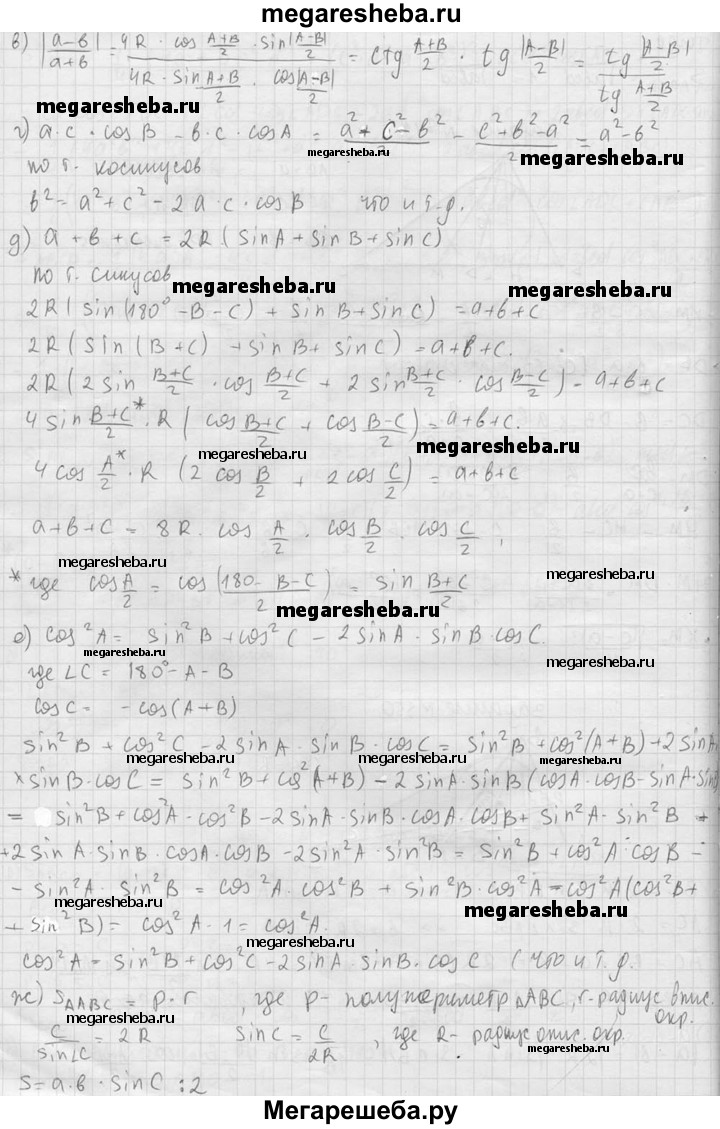 megaresheba.ru
в) |a-в|/|a+в| = 4R · cos (A+B)/2 · sin |A-B|/2 / 4R · sin (A+B)/2 · cos |A-B|/2 = ctg (A+B)/2 · tg |A-B|/2 = tg |A-B|/2 / tg (A+B)/2
megaresheba.ru
megaresheba.ru
г) a·c·cosB - в·c·cosA = (a²+c²-в²)/2 - (c²+в²-a²)/2 = a²-в²
megaresheba.ru
megaresheba.ru
по т. косинусов
в² = a²+c²-2a·c·cosB что и т.д.
д) a+в+c = 2R(sinA+sinB+sinC)
по т. синусов
megaresheba.ru
megaresheba.ru
2R(sin(180°-B-C) + sinB+sinC) = a+в+c
2R(sin(B+C) + sinB+sinC) = a+в+c.
2R(2sin (B+C)/2 · cos (B+C)/2 + 2sin (B+C)/2 · cos (B-C)/2) = a+в+c
4sin (B+C)/2* · R(cos (B+C)/2 + cos (B-C)/2) = a+в+c.
megaresheba.ru
megaresheba.ru
4cos A/2* · R (2cos B/2 + 2cos C/2) = a+в+c
a+в+c = 8R · cos A/2 · cos B/2 · cos C/2 ,
megaresheba.ru
megaresheba.ru
* где cos A/2 = cos (180-B-C)/2 = sin (B+C)/2
megaresheba.ru
е) cos²A = sin²B + cos²C - 2sinA·sinB·cosC.
megaresheba.ru
megaresheba.ru
где ∠C = 180°-A-B
cosC = -cos(A+B)
sin²B + cos²C - 2sinA·sinB·cosC = sin²B + cos²(A+B) + 2sinA·
megaresheba.ru
megaresheba.ru
megaresheba.ru
× sinB·cosC = sin²B + cos²(A+B) - 2sinA·sinB(cosA·cosB - sinA·sin
= sin²B + cos²A·cos²B - 2sinA·sinB·cosA·cosB + sin²A·sin²B +
+ 2sinA·sinB·cosA·cosB - 2sin²A·sin²B = sin²B + cos²A·cos²B -
- sin²A·sin²B = cos²A·cos²B + sin²B·cos²A = cos²A(cos²B +
megaresheba.ru
+ sin²B) = cos²A·1 = cos²A.
megaresheba.ru
cos²A = sin²B + cos²C - 2sinA·sinB·cosC (что и т.д.
megaresheba.ru
ж) SΔABC = p·r , где p - полупериметр ΔABC, r - радиус впис. окр.
megaresheba.ru
megaresheba.ru
c/sin∠C = 2R sinC = c/2R , где R - радиус опис. окр.
megaresheba.ru
S = a·в·sinC :2
Мегарешеба.ру